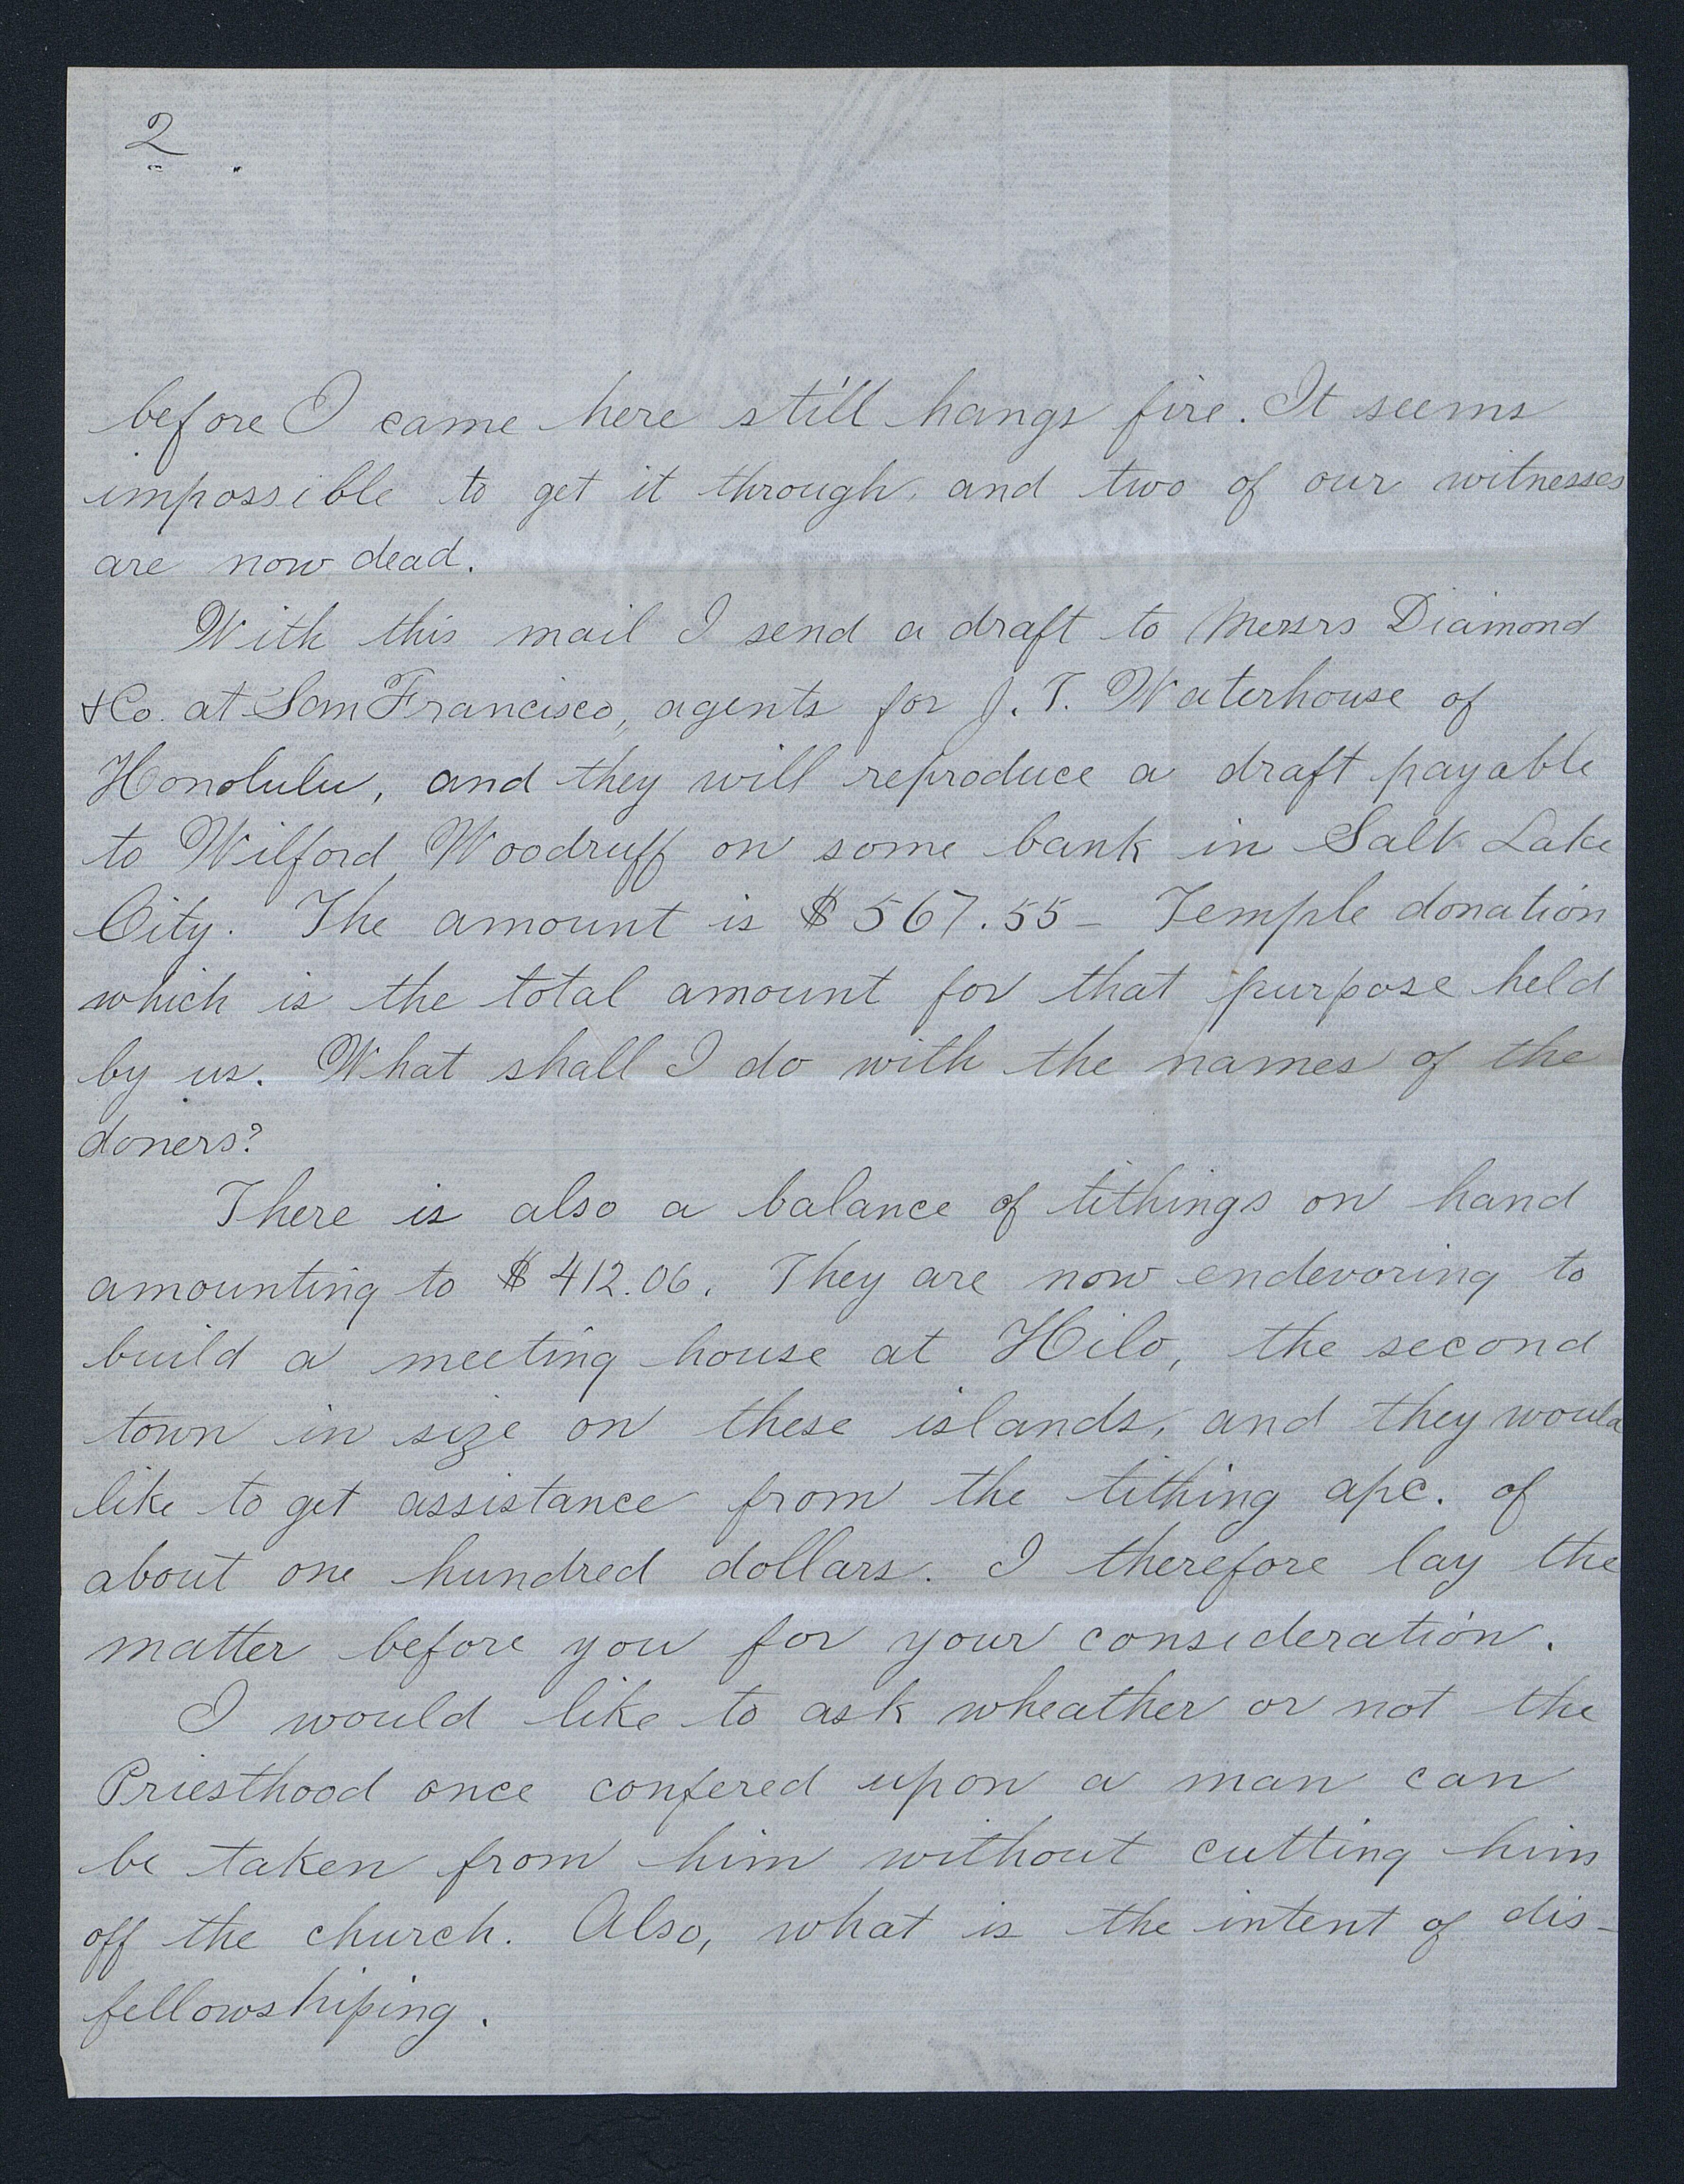 2
before I came here still hangs fire. It seems
impossible to get it through, and two of our witnesses
are now dead.
With this mail I send a draft to Messrs Diamond
& Co. at San Francisco, agents for J. T. Waterhouse of
Honolulu, and they will reproduce a draft payable
to Wilford Woodruff on some bank in Salt Lake
City. The amount is $567.55 - Temple donation
which is the total amount for that purpose held
by us. What shall I do with the names of the
doners?
There is also a balance of tithings on hand
amounting to $412.06. They are now endevoring to
build a meeting house at Hilo, the second
town in size on these islands, and they would
like to get assistance from the tithing apc. of
about one hundred dollars. I therefore lay the
matter before you for your consideration.
I would like to ask wheather or not the
Priesthood once confered upon a man can
be taken from him without cutting him
off the church. Also, what is the intent of dis-
fellowshiping.